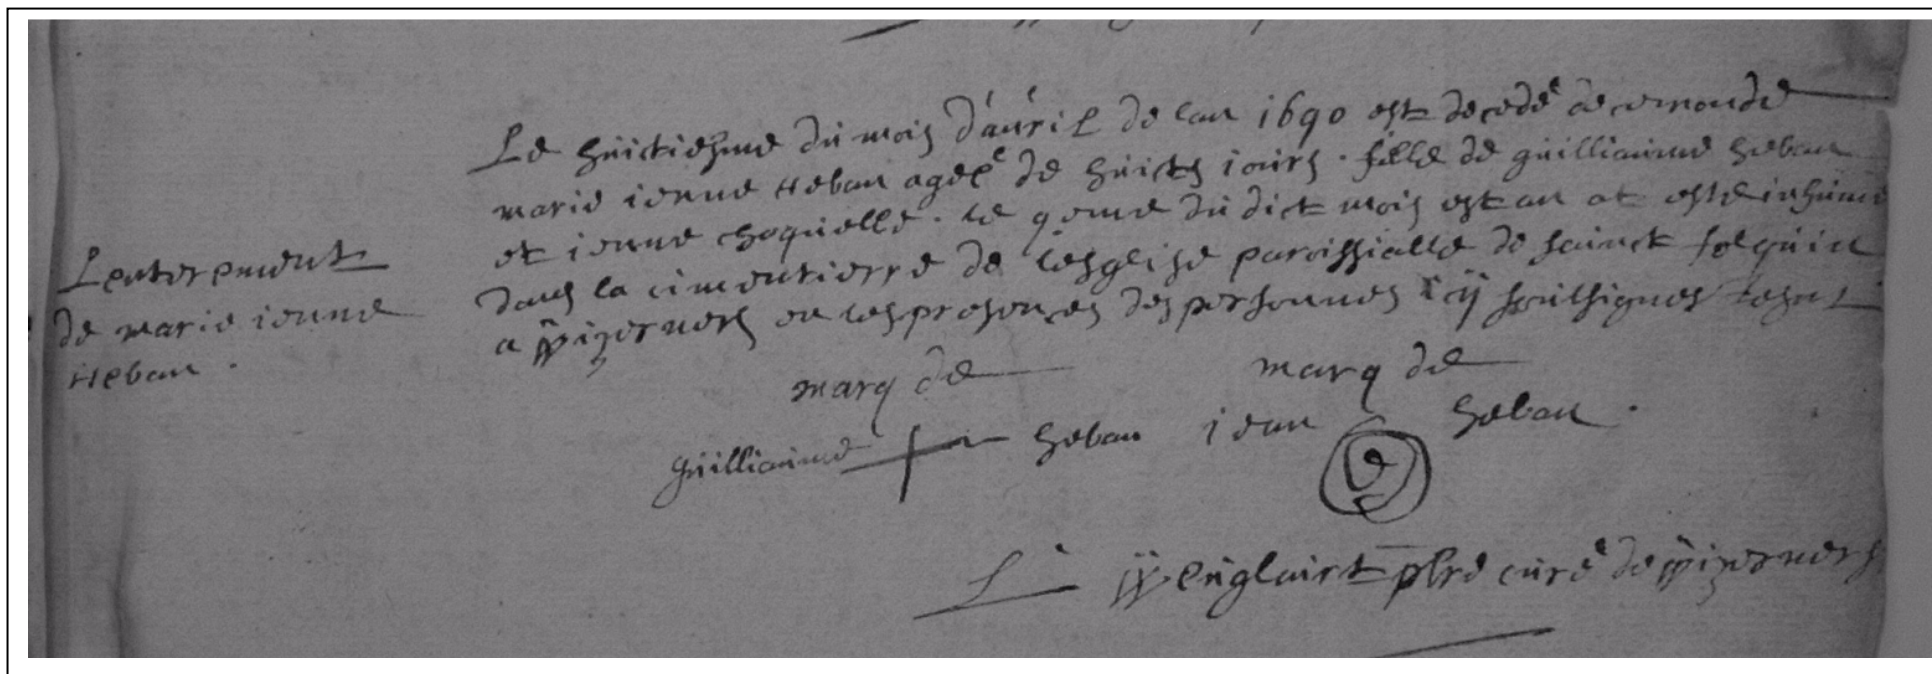 Lenterement
de marie ienne
Heban .
Le huictiesme du mois d'auril de lan 1690 est decedé de ce monde
marie ienne Heban ageé de huicts iours . fille de guilliaume heban
et ienne choquelle . le 9eme du dict mois est an at esté inhumé
dans la cimentierre de lesglise paroissialle de sainct folquin
a wizerners en les presences des personnes icy soubsignes
marq de marq de
guilliaume heban iean heban .
L wenglairt pbre curé de wizerners